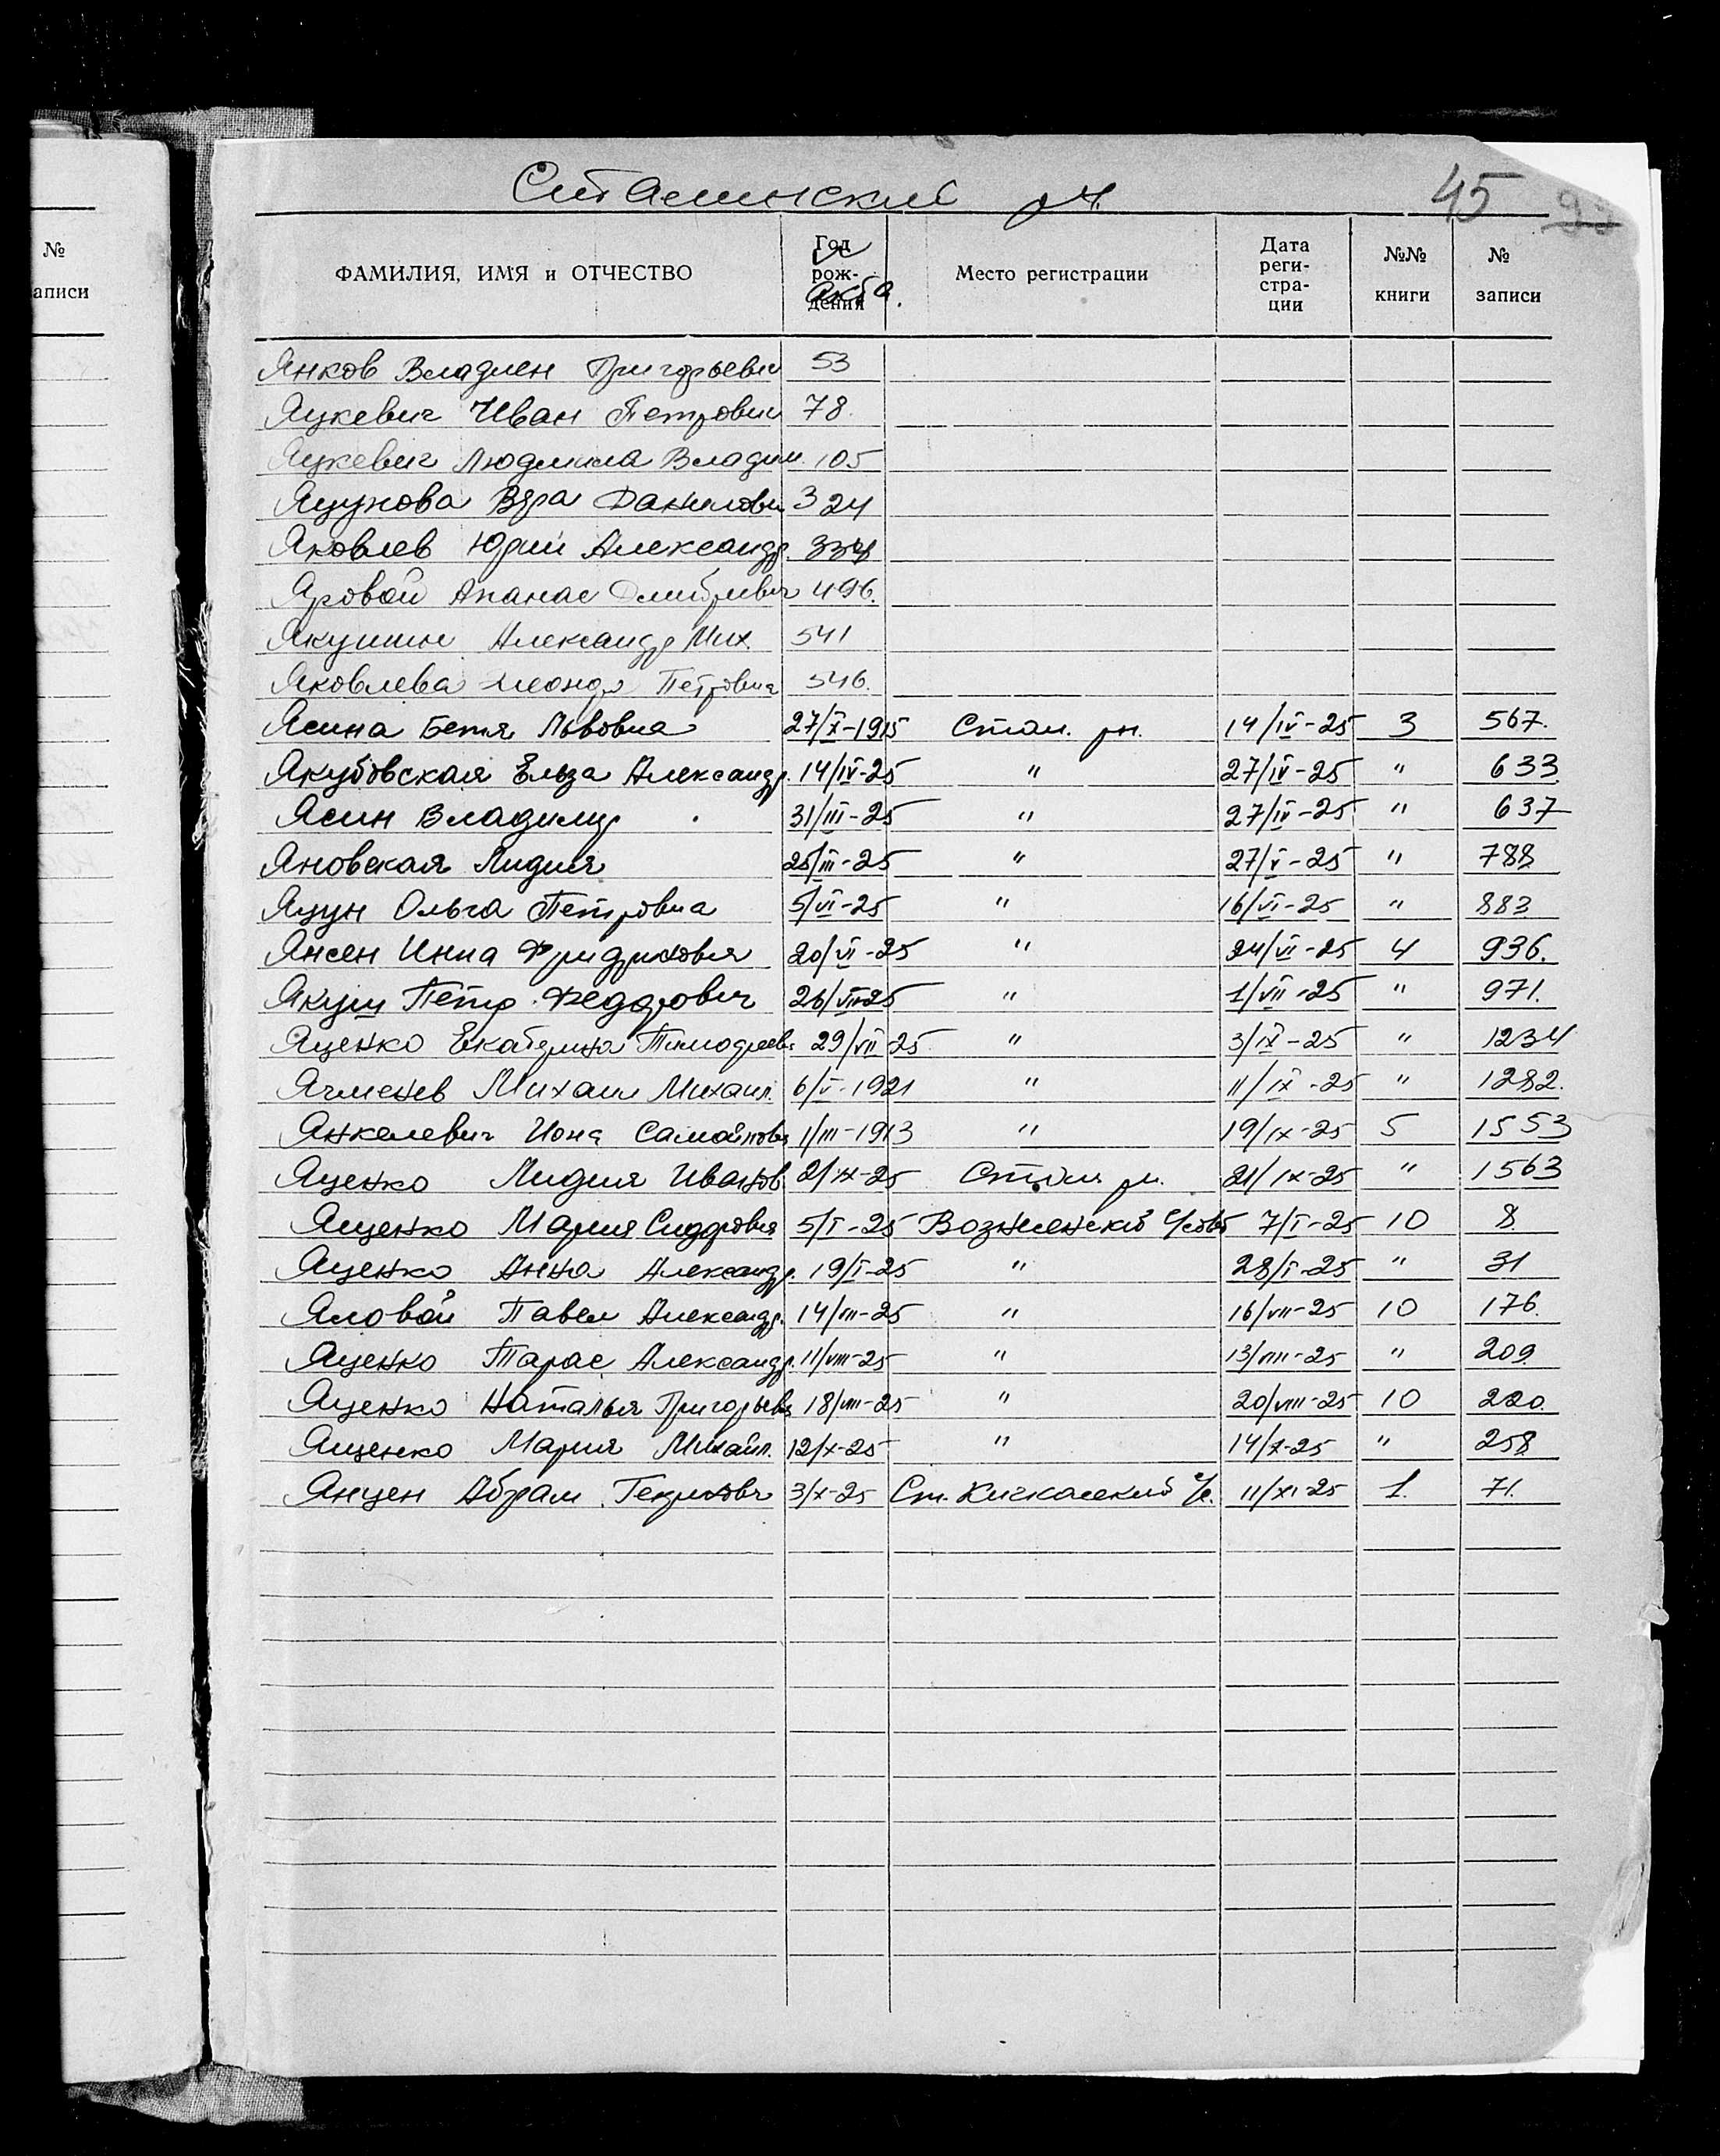 Сталинский рн.
45
№
записи
ФАМИЛИЯ, ИМЯ и ОТЧЕСТВО Год рождения № акта. Место регистрации Дата регистрации №№ книги № записи
Янков Владлен Григорьевич 53
Яцкевич Иван Петрович 78.
Яцкевич Людмила Владим. 105
Яцукова Вера Данилови 324
Яковлев Юрий Александр. 334
Яровой Апанас Дмитриевич 496.
Якушин Александр Мих. 541
Яковлева Петровна 546.
Ясина Бетя Львовна 27/X-1915 Стал. рн. 14/IV-25 3 567.
Якубовская Ельза Александр. 14/IV-25 " 27/IV-25 " 633
Ясин Владимир 31/III-25 " 27/IV-25 " 637
Яновская Лидия 25/III-25 " 27/V-25 " 788
Яцун Ольга Петровна 5/VI-25 " 16/VI-25 " 883
Янсен Инна Фридриховна 20/VI-25 " 24/VI-25 4 936.
Якуш Петр Федорович 26/VI-25 " 1/VII-25 " 971.
Яценко Екатерина Тимофеев. 29/VII 25 " 3/IX-25 " 1234
Ячменев Михаил Михаил. 6/V-1921 " 11/IX-25 " 1282.
Янкелевич Иона Самойлович 1/III-1913 " 19/IX-25 5 1553
Яценко Лидия Иванов. 2/IX-25 Стал. рн. 21/IX-25 " 1563
Ященко Мария Сидоровна 5/I-25 Вознесенский с/совт 7/I-25 10 8
Яценко Анна Александр. 19/I-25 " 28/I-25 " 31
Яловой Павел Александр. 14/VII-25 " 16/VII-25 10 176.
Яценко Тарас Александр. 11/VIII-25 " 13/VIII-25 " 209.
Яценко Наталья Григорьевна 18/VIII-25 " 20/VIII-25 10 220.
Ященко Мария Михайл. 12/X-25 " 14/X-25 " 258
Янцен Абрам Генрихович 3/X-25 Ст. Кичкасский с/с. 11/XI-25 1. 71.